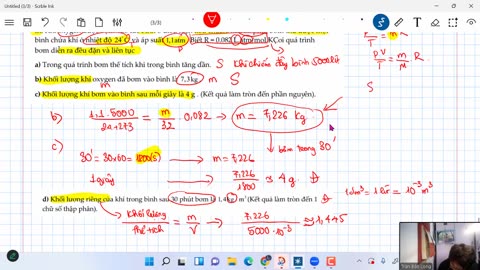 Untitled (3/3) - Sizzle Ink
(3/3)
bình chứa khí ở nhiệt độ 24 C và áp suất 1,1atm. Biết R = 0,082 L.atm/mol.K. Coi quá trình
bơm diễn ra đều đặn và liên tục
a) Trong quá trình bơm thể tích khí trong bình tăng dần. S Khí chiếm đầy bình 5000 lít
b) Khối lượng khí oxygen đã bơm vào bình là 7,3kg m S
c) Khối lượng khí bơm vào bình sau mỗi giây là 4 g . (Kết quả làm tròn đến phần nguyên).
T
PV/T = m/M R
S
b) 1,1.5000/24+273 = m/32 . 0,082 → m = 7,226 kg
bơm trong 30'
c) 30' = 30×60 = 1800(s) → m = 7,226
1 giây → 7,226/1800 ≈ 4g Đ
d) Khối lượng riêng của khí trong bình sau 30 phút bơm là 1,4kg/m³ (Kết quả làm tròn đến 1
chữ số thập phân).
Đ
1dm³ = 1 lít = 10⁻³ m³
Khối lượng/thể tích = m/V → 7,226/5000.10⁻³ ≈ 1,445